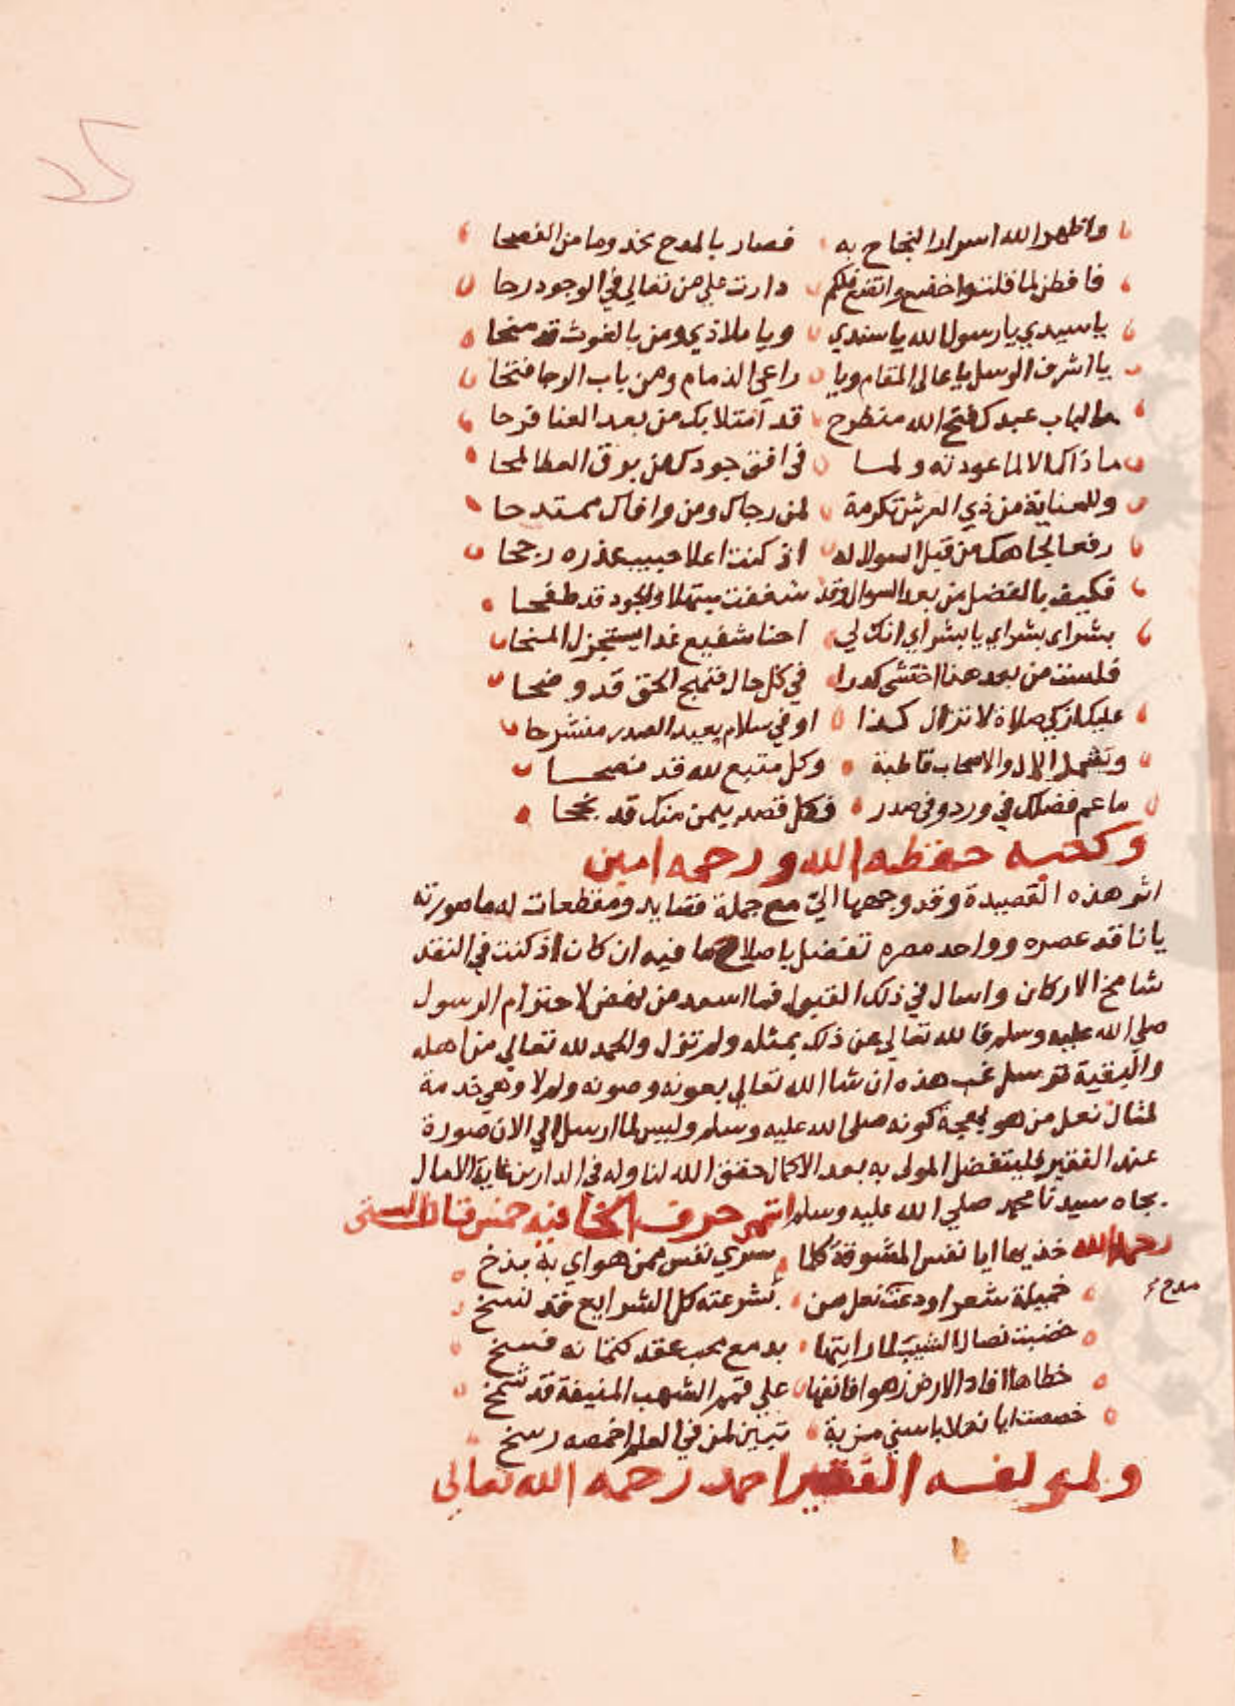 واظهر الله اسرار النجاح به فصار بالمدح مخدوما من الفصحا
فافطن لما قلت واخضع واتضع فلكم دارت على من تعالى في الوجود رحا
يا سيدي يا رسول الله يا سندي ويا ملاذي ومن بالغوث قد منحا
يا اشرف الرسل يا عالى المقام ويا راعي الذمام ومن باب الرجا فتحا
بالباب عبدك فتح الله منطرح قد امتلا بك من بعد العنا فرحا
ما ذاك الا لما عودته ولما في افق جودك من برق العطا لمحا
وللعناية من ذي العرش تكرمة لمن رجاك ومن وافاك ممتدحا
رفعا لجاهك من قبل السؤلا له اذ كنت اعلا حبيب عذره رجحا
فكيف بالفضل من بعد السوال وقد شففت مبتهلا والجود قد طفحا
بشراي بشراي يا بشراي انك لي احنا شفيع غدا يستجزل المنحا
فلست من بعد هذا اختشى كدرا في كل حال فنهج الحق قد وضحا
عليك ازكى صلاة لا تزال كذا اوفي سلام يعيد الصدر منشرحا
وتشمل الال والاصحاب قاطبة وكل متبع لله قد نصحا
ما عم فضلك في ورد وفي صدر وكل قصد بيمن منك قد نجحا
وكتب حفظه الله ورحمه امين
اثر هذه القصيدة وقد وجهها الي مع جملة قصايد ومقطعات له ما صورته
يا ناقد عصره وواحد مصره تفضل باصلاح ما فيه ان كان اذ كنت في النقد
شامخ الاركان واسال في ذلك القبول فما اسعد من نهض لاحترام الرسول
صلى الله عليه وسلم قا لله تعالى عن ذلك بمثله ولم تزل والحمد لله تعالى من اهله
والبقية ترسل غب هذه ان شا الله تعالى بعونه وصونه ولم لا وهي خدمة
لمثال نعل من هو لمهجة كونه صلى الله عليه وسلم وليس لما ارسل الي الان صورة
عند الفقير فليتفضل المولى به بعد الاكمال حقق الله لنا وله في الدارين غاية الامال
بجاه سيدنا محمد صلى الله عليه وسلم انتهى حرف الخا فيه خمس قال السبتى
رحمه الله خذيها ايا نفس المشوقة كلما سرى نفس ممن هواي به بذخ
مدح
خميلة شعر اودعت نعل من بشرعته كل الشرايع قد نسخ
خضبت نصال الشيب لما رايتها بدمع محب عقد كتمانه فسخ
خطاها افاد الارض زهوا فانفها على قمم الشهب المنيفة قد شمخ
خصصت ايا نعلا باسنى مزية تبين لمن في العلم اخمصه رسخ
ولمولفه الفقير احمد رحمه الله تعالى